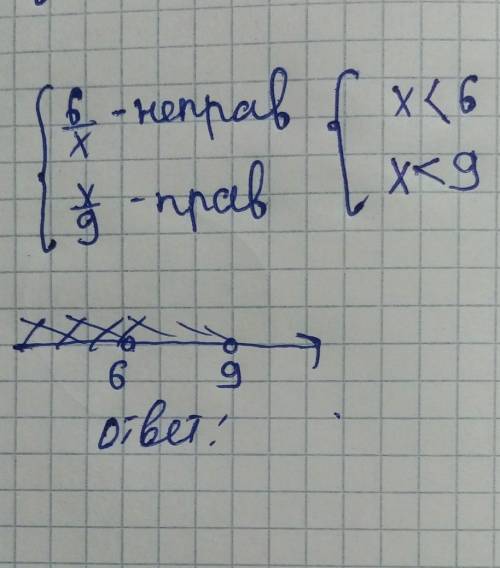 { 6/x - неправ { x < 6
x/9 - прав x < 9
6 9
ответ: